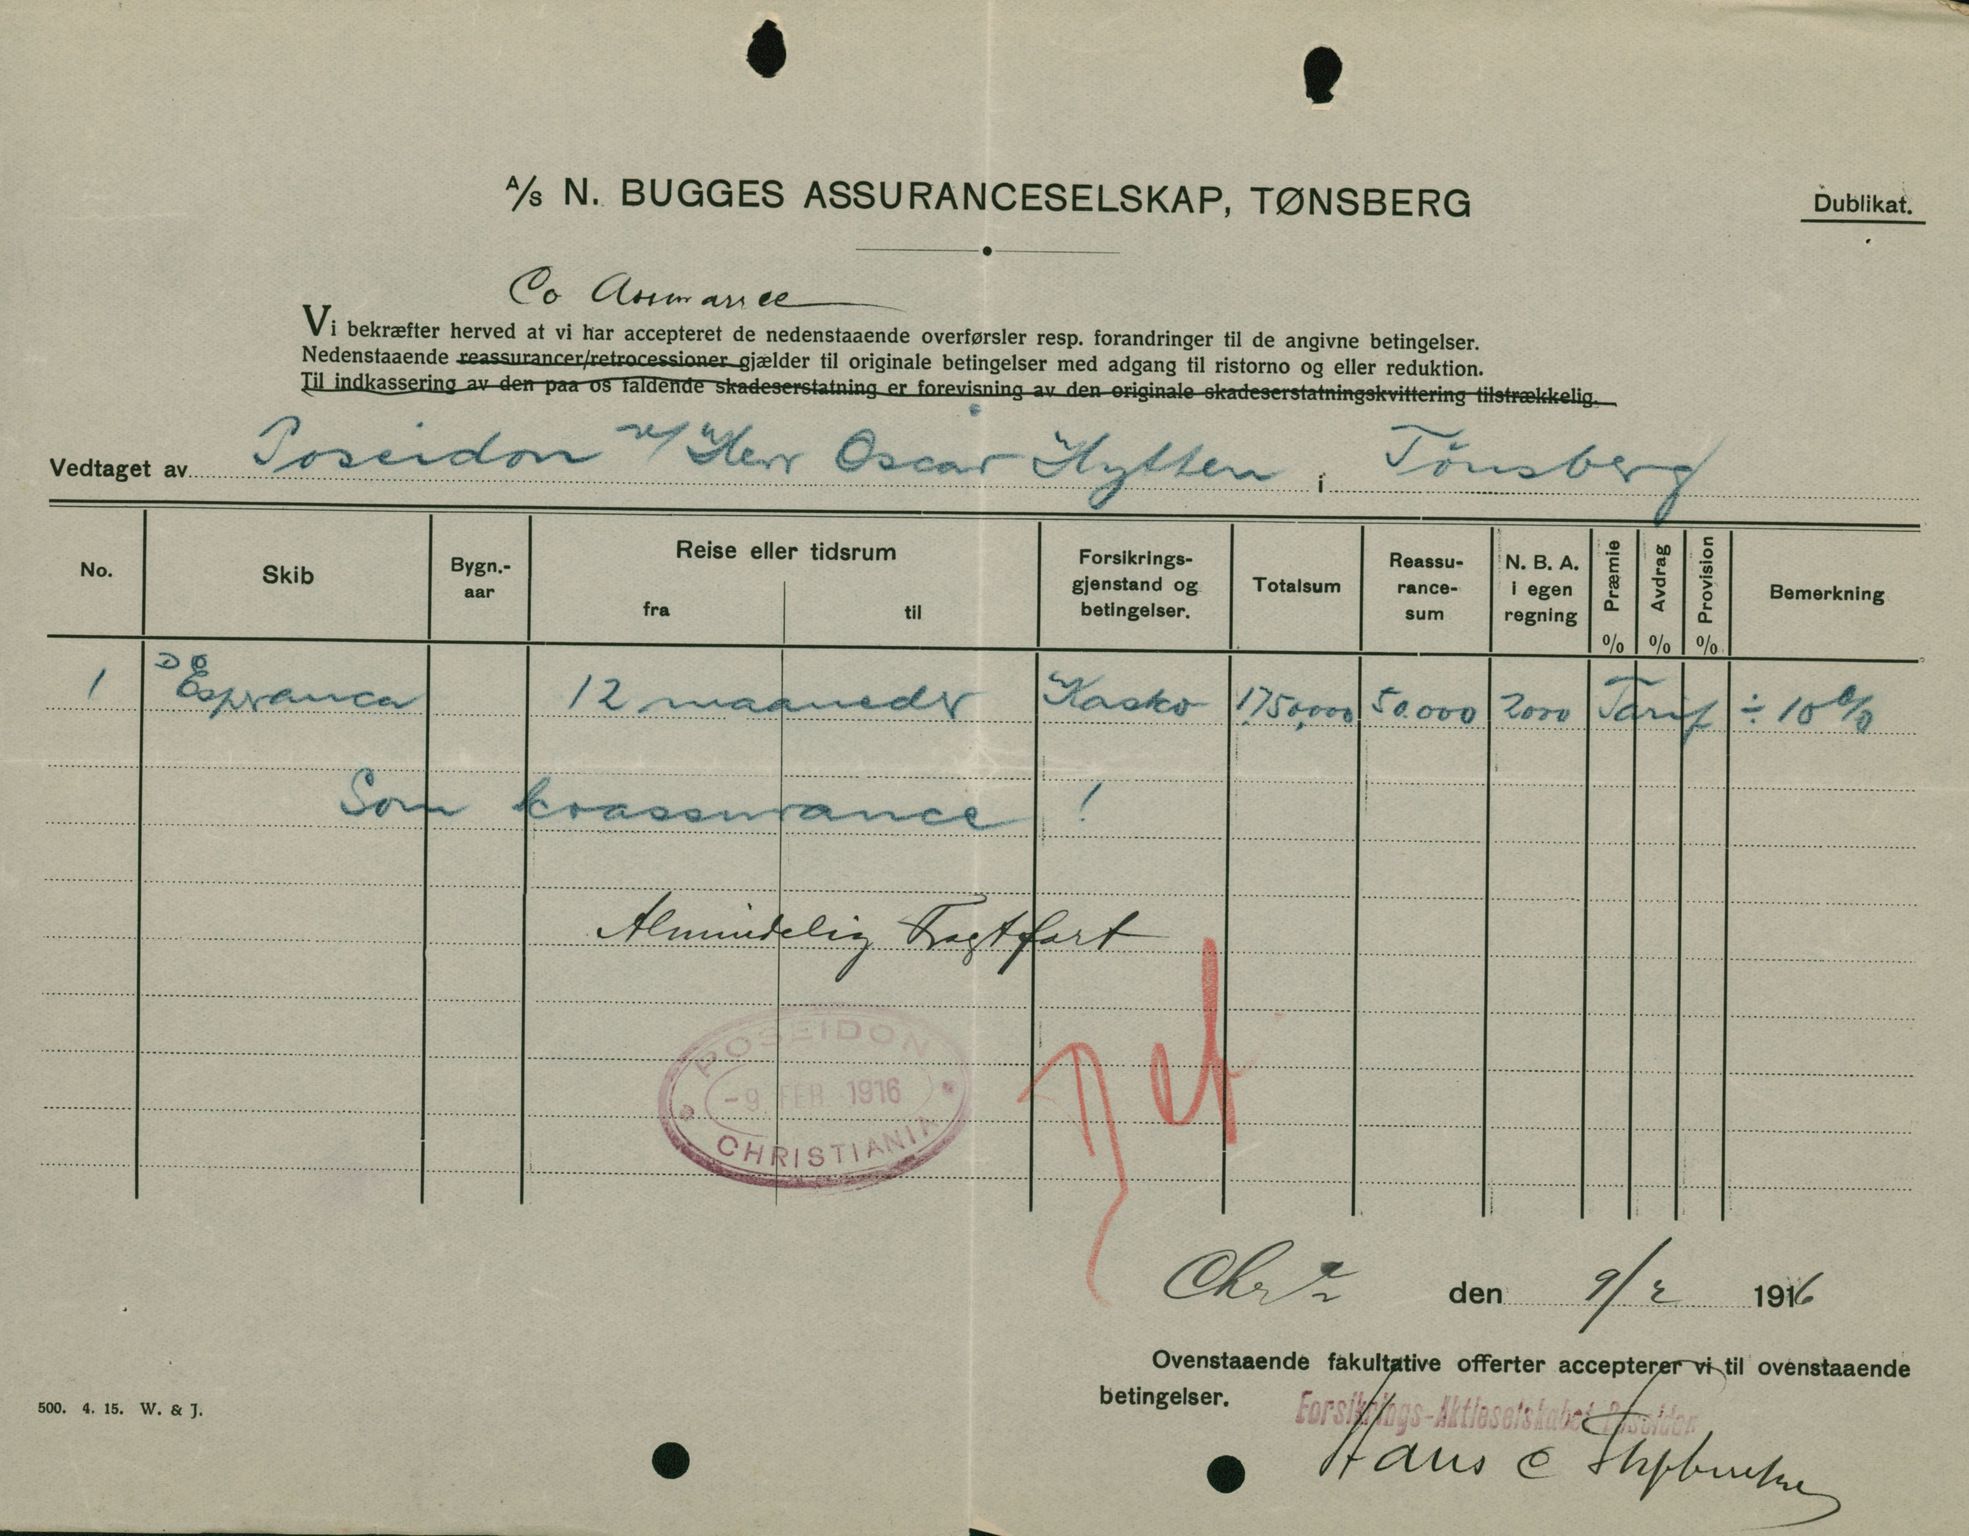 A/S N. BUGGES ASSURANCESELSKAP, TØNSBERG
Dublikat.
Co Assurance
Vi bekræfter herved at vi har accepteret de nedenstaaende overførsler resp. forandringer til de angivne betingelser.
Nedenstaaende reassurancer/retrocessioner gjælder til originale betingelser med adgang til ristorno og eller reduktion.
Til indkassering av den paa os faldende skadeserstatning er forevisning av den originale skadeserstatningskvittering tilstrækkelig.
Vedtaget av Poseidon v/ Herr Oscar Hytten i Tönsberg
No. Skib Bygn.-aar Reise eller tidsrum fra til Forsikrings-gjenstand og betingelser. Totalsum Reassu-rance-sum N. B. A. i egen regning Præmie % Avdrag % Provision % Bemerkning
1 DS Esperanca 12 maaneder Kasko 1,750,000 50.000 2000 Tarif ÷ 10%
Som koassurance !
Almindelig Fragtfart
POSEIDON
-9 FEB 1916
CHRISTIANIA
Chr.a den 9/2 1916
Ovenstaaende fakultative offerter accepterer vi til ovenstaaende
betingelser.
Forsikrings-Aktieselskabet Poseidon
Hans C
500. 4. 15. W. & J.